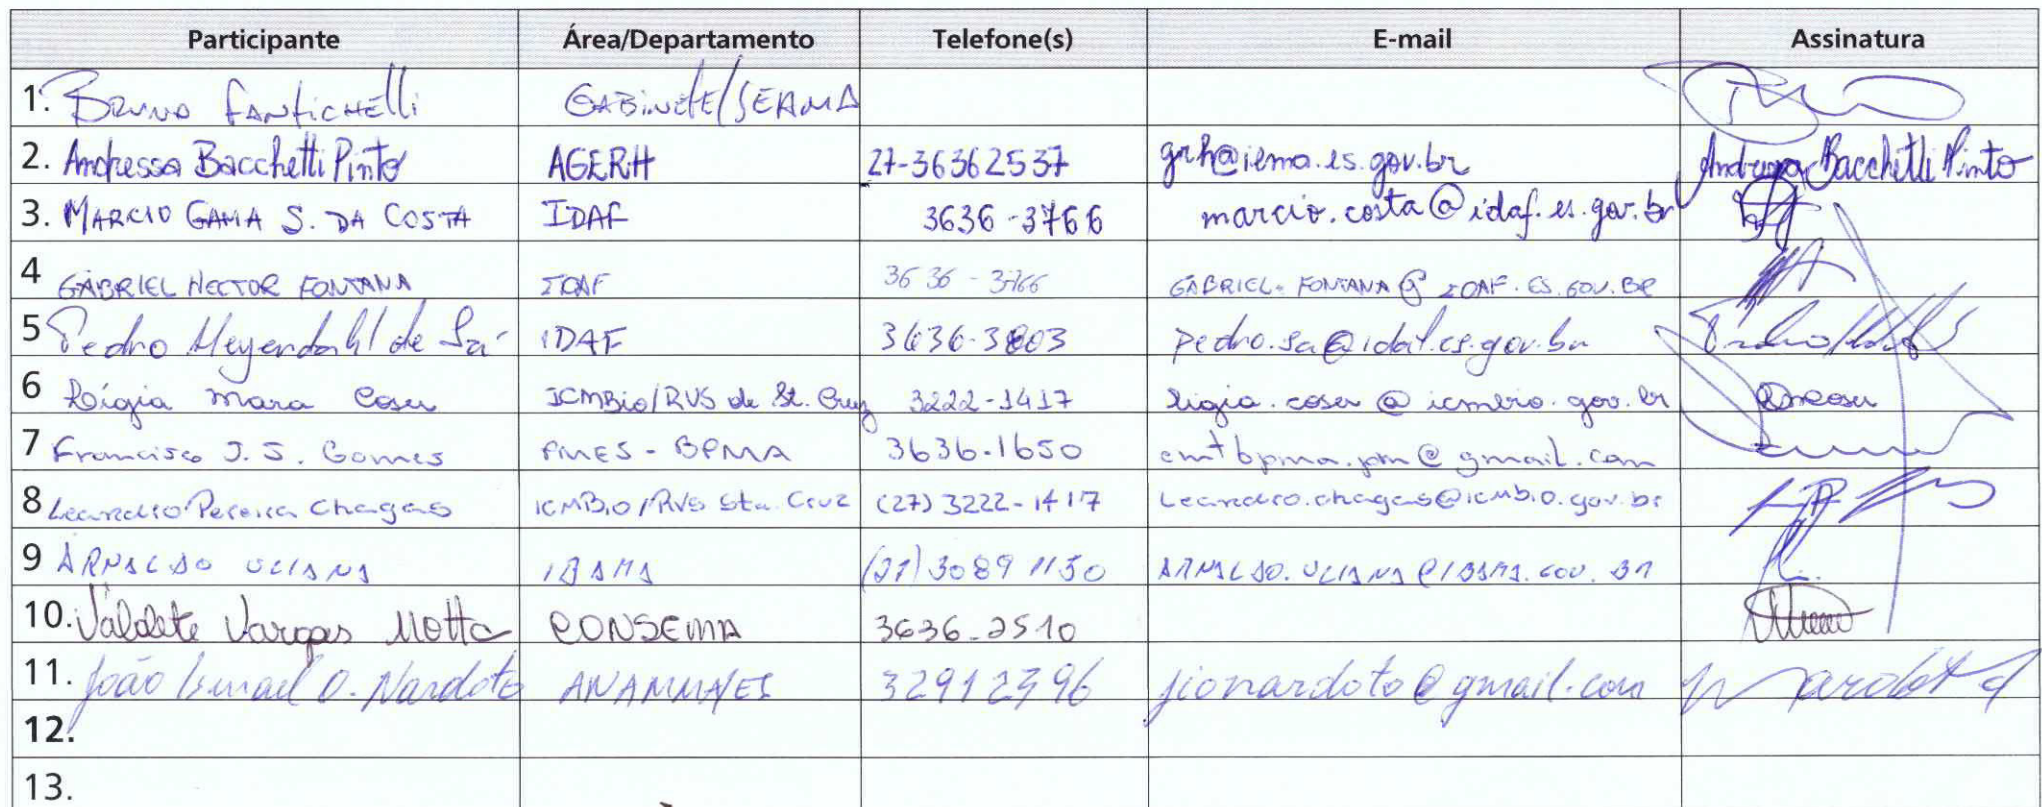 Participante Área/Departamento Telefone(s) E-mail Assinatura
1. BRUNO FANTICHELLI GABINETE/SEAMA
2. Andressa Bacchetti Pinto AGERH 27-36362537 grh@iema.es.gov.br Andressa Bacchetti Pinto
3. MARCIO GAMA S. DA COSTA IDAF 3636-3766 marcio.costa@idaf.es.gov.br
4 GABRIEL HECTOR FONTANA IDAF 3636-3766 GABRIEL.FONTANA@IDAF.ES.GOV.BR
5 Pedro Heyerdahl de Sá IDAF 3636-3803 pedro.sa@idaf.es.gov.br
6 Lígia Mara Coser ICMBio/RVS de St. Cruz 3222-1417 ligia.coser@icmbio.gov.br
7 Francisco J. S. Gomes PMES - BPMA 3636-1650 cmtbpma.pm@gmail.com
8 Leandro Pereira Chagas ICMBio/RVS Sta. Cruz (27) 3222-1417 Leandro.chagas@icmbio.gov.br
9 ARNALDO ULIANA IBAMA (27) 3089 1150 ARNALDO.ULIANA@IBAMA.GOV.BR
10. Valdete Vargas Motta CONSEMA 3636-2510
11. João Ismael O. Nardoto ANAMMA/ES 32912396 jionardoto@gmail.com
12.
13.